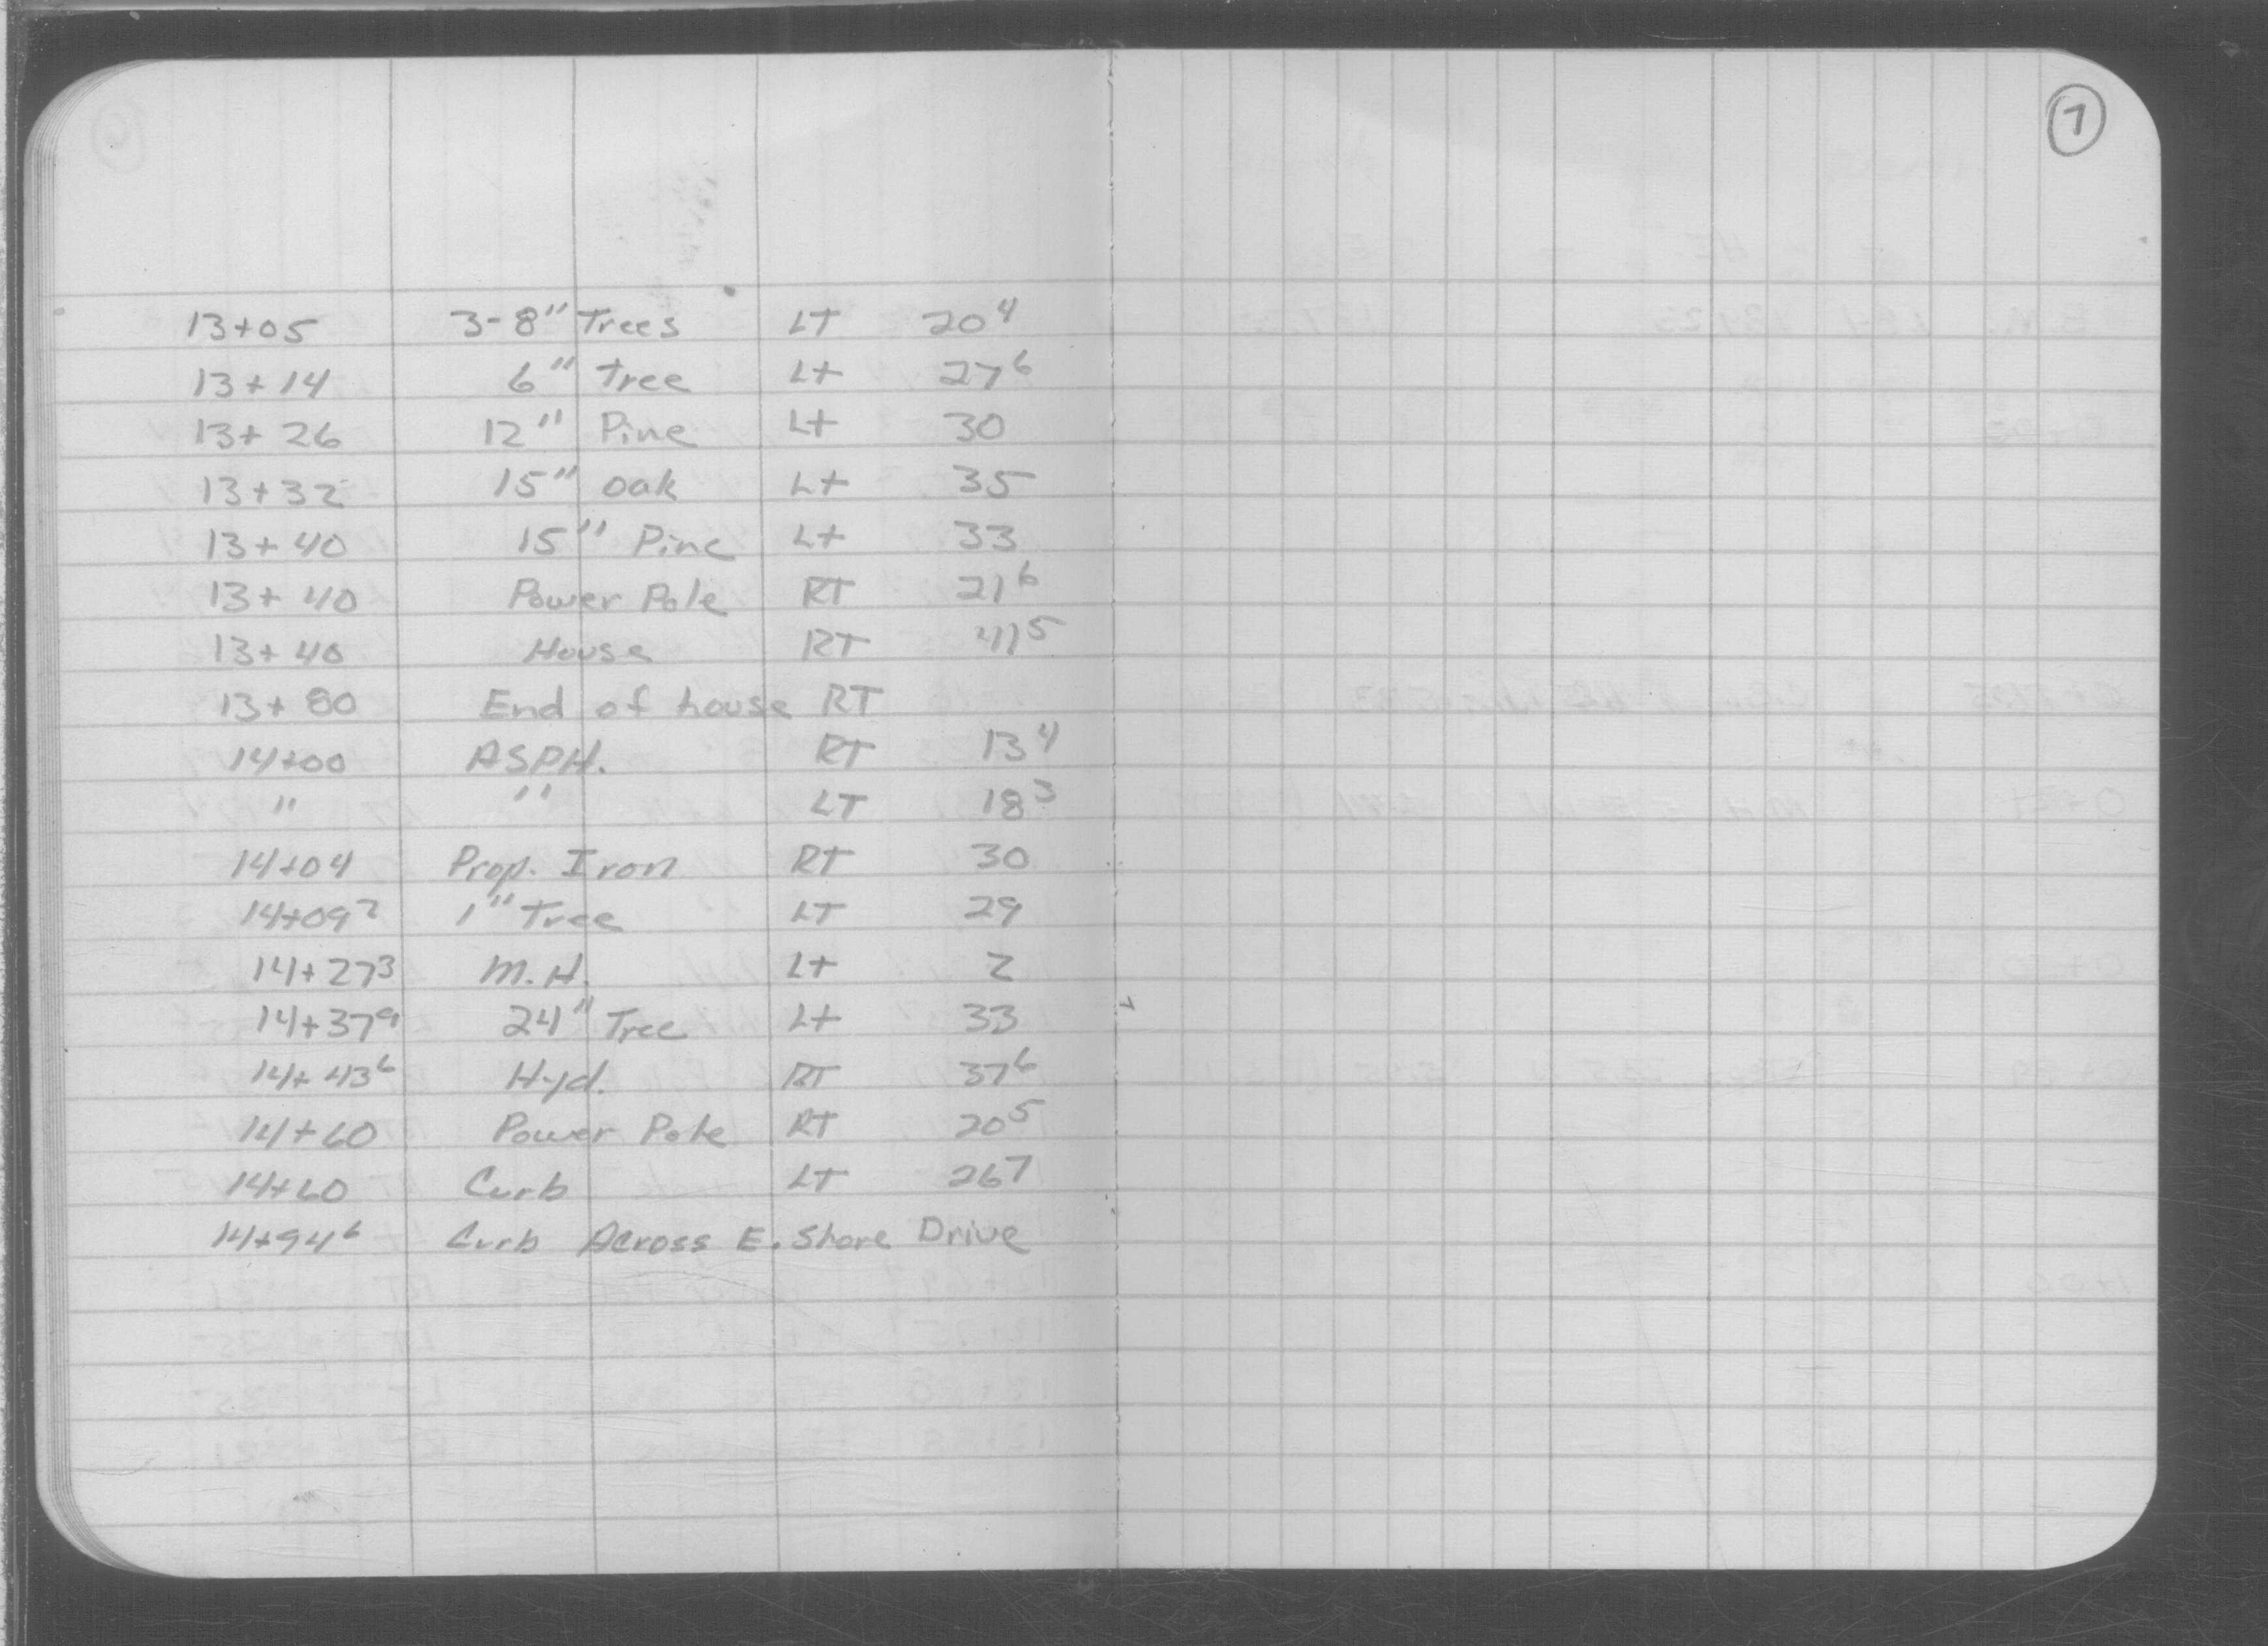 7
13+05 3-8" Trees LT 20⁴
13+14 6" Tree Lt 27⁶
13+26 12" Pine Lt 30
13+32 15" Oak Lt 35
13+40 15" Pine Lt 33
13+40 Power Pole RT 21⁶
13+40 House RT 41⁵
13+80 End of house RT
14+00 ASPH. RT 13⁴
" " LT 18³
14+04 Prop. Iron RT 30
14+09² 1" Tree LT 29
14+27³ M.H. Lt 2
14+37⁹ 24" Tree Lt 33
14+43⁶ Hyd. RT 37⁶
14+60 Power Pole RT 20⁵
14+60 Curb LT 26⁷
14+94⁶ Curb Across E. Shore Drive